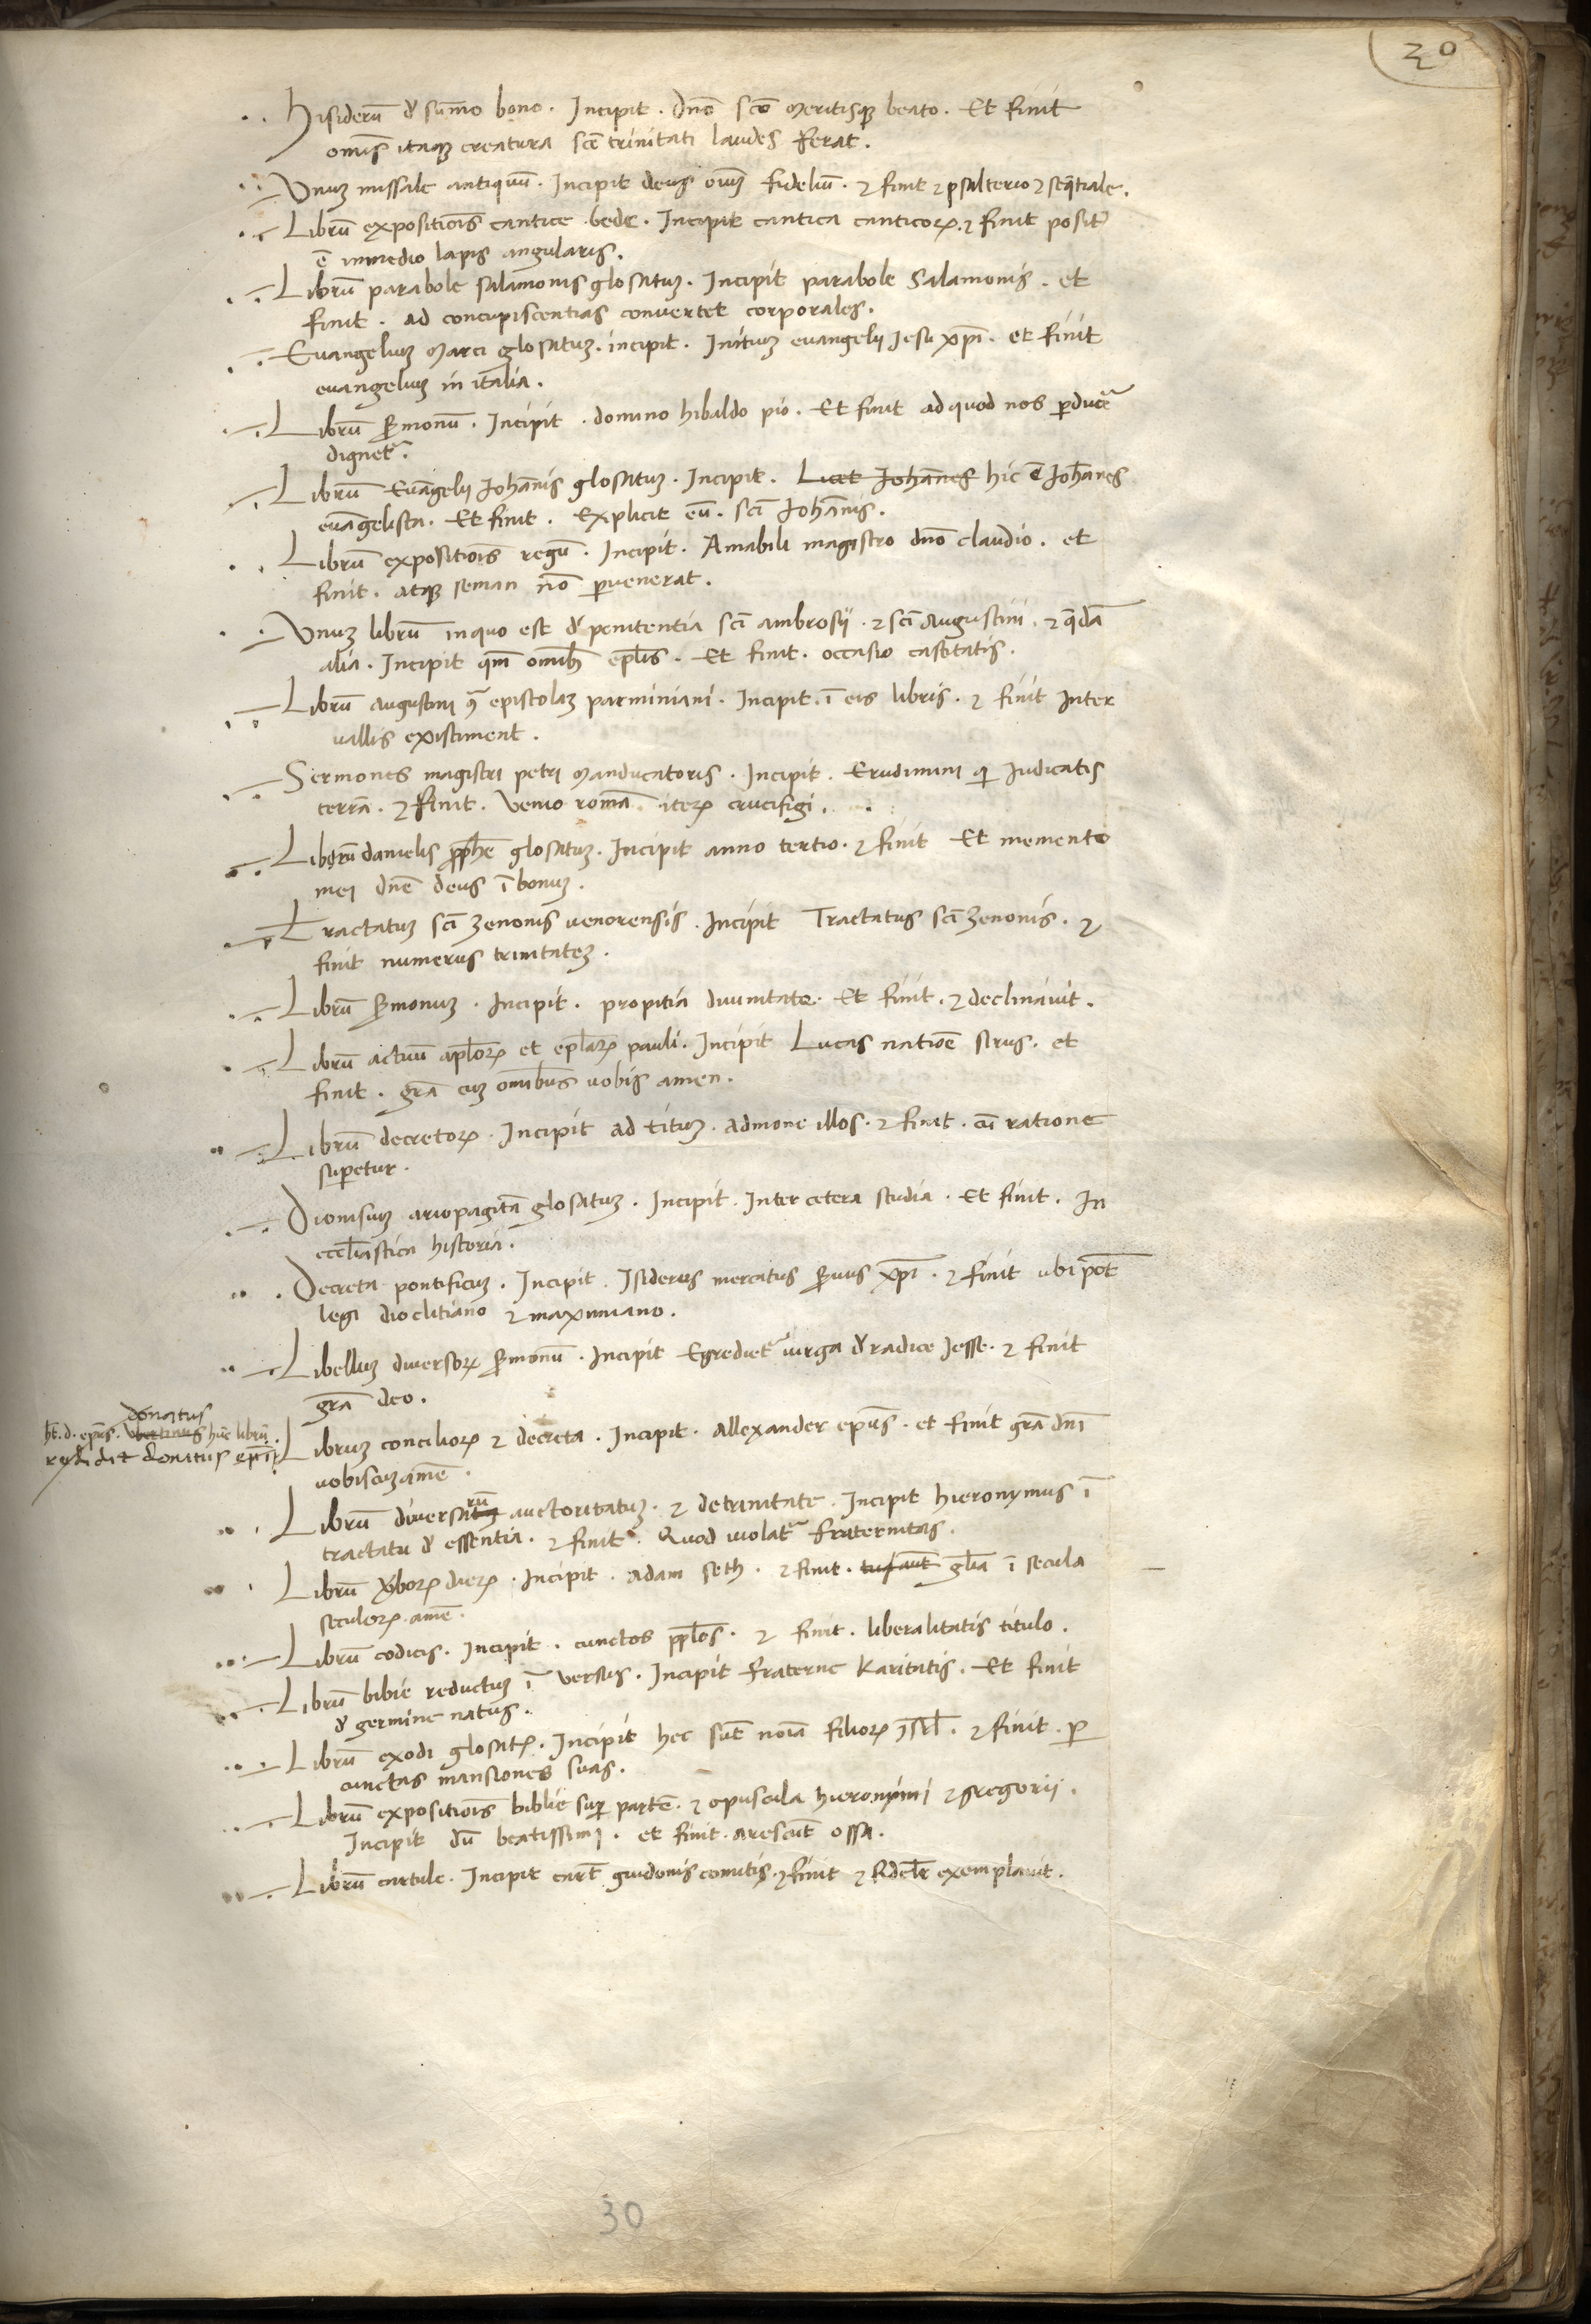 30
Hisiderū đ sūmo bono. Incipit. dn̄o sc̄o meritisqȝ beato. Et finit
omīs itaqȝ creatura sc̄e trinitati laudes ferat.
Vnuȝ missale antiquū. Incipit deus oīuȝ fideliū. ⁊ finit ⁊ psalterio ⁊ seq̄tiale.
Librū expositiōis cantice bede. Incipit cantica canticoꝝ. ⁊ finit posit᷒
ē inmedio lapis angularis.
Librū parabole salamonis glosatuȝ. Incipit parabole Salamonis. et
finit. ad concupiscentias convertet corporales.
Euangeliuȝ Marci glosatuȝ. incipit. Initiuȝ euangelij Jesu xp̄i. et finit
euangeliuȝ in italia.
Librū s̄monū. Incipit. domino hibaldo pio. Et finit ad quod nos ꝑducē
dignet᷑.
Librū Euāgelij Johānis glosatuȝ. Incipit. Licet Johānes hic ē Joh̄anes
euāgelista. Et finit. Explicit eū. sc̄i Johānis.
Librū expositiōis regū. Incipit. Amabili magistro dn̄o claudio. et
finit. atqȝ seman nō ꝑvenerat.
Vnuȝ librū inquo est đ penitentia sc̄i ambrosij. ⁊ sc̄i Augustini. ⁊ q̄dā
alia. Incipit qm̄ omībȝ ep̄lis. Et finit. occasio castitatis.
Librū augustini ꝯᷓ epistolaȝ parminiani. Incipit. ī eis libris. ⁊ finit Inter
uallis existiment.
Sermones magistri petri Manducatoris. Incipit. Erudimini qi Iudicatis
terrā. ⁊ finit. Venio romā iteꝝ crucifigi.
Librū danielis ꝓph̄e glosatuȝ. Incipit anno tertio. ⁊ finit Et memento
mei dn̄e deus ī bonuȝ.
Tractatuȝ sc̄i Zenonis uenorensis. Incipit Tractatus sc̄i Zenonis. ⁊
finit numerus trinitateȝ.
Librū s̄monuȝ. Incipit. propitia diuinitate. Et finit. ⁊ declinauit.
Librū actuū apl̄oꝝ et epl̄aꝝ pauli. Incipit Lucas natiōe sirus. et
finit. gr̄a cuȝ omībus uobis amen.
Librū decretoꝝ. Incipit ad tituȝ. admone illos. ⁊ finit. cū ratione
suꝑetur.
Dionisiuȝ ariopagitā glosatuȝ. Incipit. Inter cetera studia. Et finit. In
eccl̄iastica historia.
Decreta pontificuȝ. Incipit. Isiderus mercatus s̄uus xp̄i. ⁊ finit ubi pōt
legi dioclitiano ⁊ maximiano.
Libellum diuersoꝝ s̄monū. Incipit Egrediet᷑ uirga đ radice Jesse. ⁊ finit
gr̄a deo.
donatus
ht̄. d. ep̄us. Vbertinus hūc librū.
redidit Donatus ep̄s
Libruȝ concilioꝝ ⁊ decreta. Incipit. Allexander ep̄us. et finit gr̄a dn̄i
uobiscuȝ amē.
Librū diuersarū auctoritatuȝ. ⁊ detrinitate. Incipit hieronymus ī
tractatu đ essentia. ⁊ finit. Quod uiolat᷑ fraternitas.
Librū v̄boꝝ diuerꝝ. Incipit. adam seth. ⁊ finit. gl̄ia ī secula
seculoꝝ. amē.
Librū codicis. Incipit. cunctos pp̄los. ⁊ finit. liberalitatis titulo.
Librū bibie reductuȝ ī versus. Incipit fraterne karitatis. Et finit
đ germine natus.
Librū exodi glosatꝝ. Incipit hec sūt noīa filioꝝ isr̄l. ⁊ finit. ꝑ
cunctas mansiones suas.
Librū expositiōis biblie suꝑ partē. ⁊ opuscula hieronimi ⁊ gregorij.
Incipit dū beatissimi. et finit. arescūt ossa.
Librū cartule. Incipit cart̄ guidonis comitis. ⁊ finit ⁊ exemplauit.
30